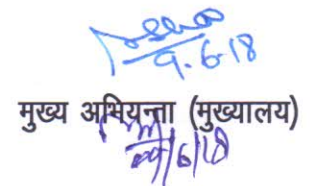 9.6.18
मुख्य अभियन्ता (मुख्यालय)
09/6/18